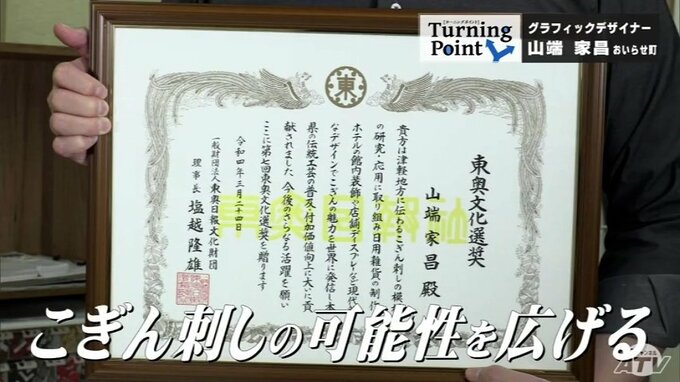 【ターニングポイント】
Turning
Point
グラフィックデザイナー
山端 家昌 おいらせ町
東
東奥文化選奨
山端家昌殿
貴方は津軽地方に伝わるこぎん刺しの模
の研究・応用に取り組み日用雑貨の制作
ホテルの館内装飾や店舗ディスプレイなど現代
なデザインでこぎんの魅力を世界に発信し本
県の伝統工芸の普及・付加価値向上に大いに貢
献されました 今後のさらなる活躍を願い
ここに第七回東奥文化選奨を贈ります
令和四年三月二十四日
一般財団法人東奥日報文化財団
理事長 塩越隆雄
東奥日報社
こぎん刺しの可能性を広げる
チャンネル
ATV